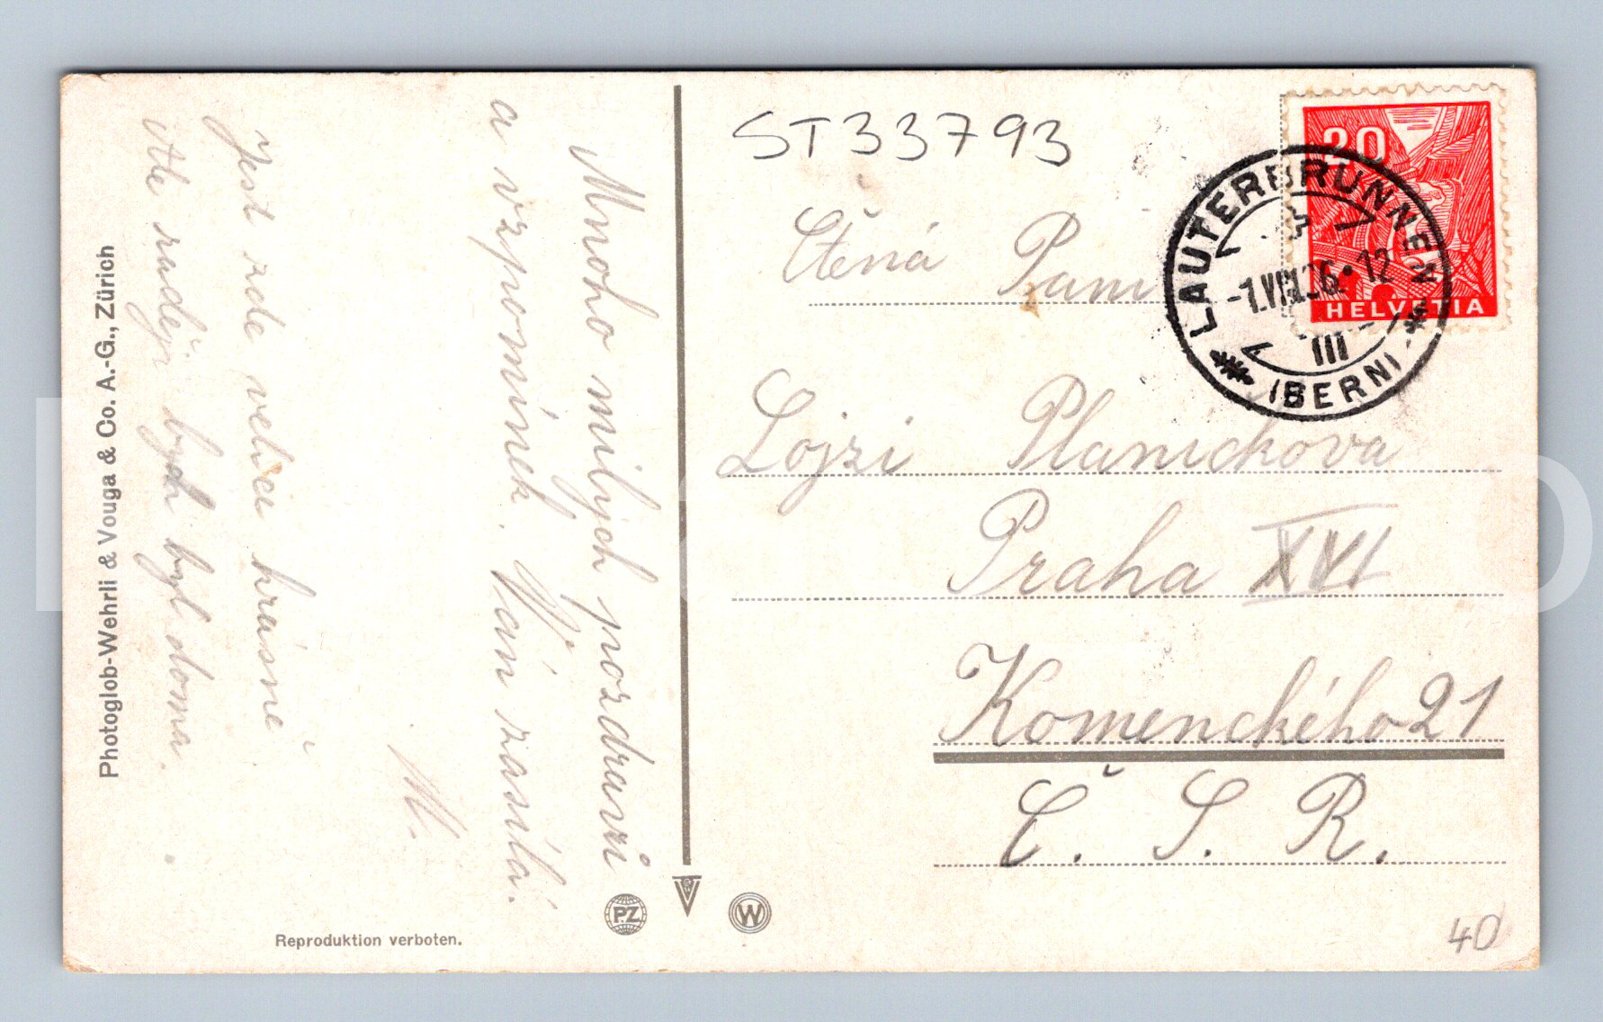 ST33793
Ctěná Paní
Lojzi Planickova
Praha XVI
Komenckého 21
Č. S. R.
Mnoho milých pozdravů
a vzpomínek Vám zasílá
M.
Jest zde velice krásně
Ale raději bych byl doma.
20
HELVETIA
LAUTERBRUNNEN
-1.VIII.36.-12
III
(BERN)
Photoglob-Wehrli & Vouga & Co. A.-G., Zürich
Reproduktion verboten.
PZ
W
40